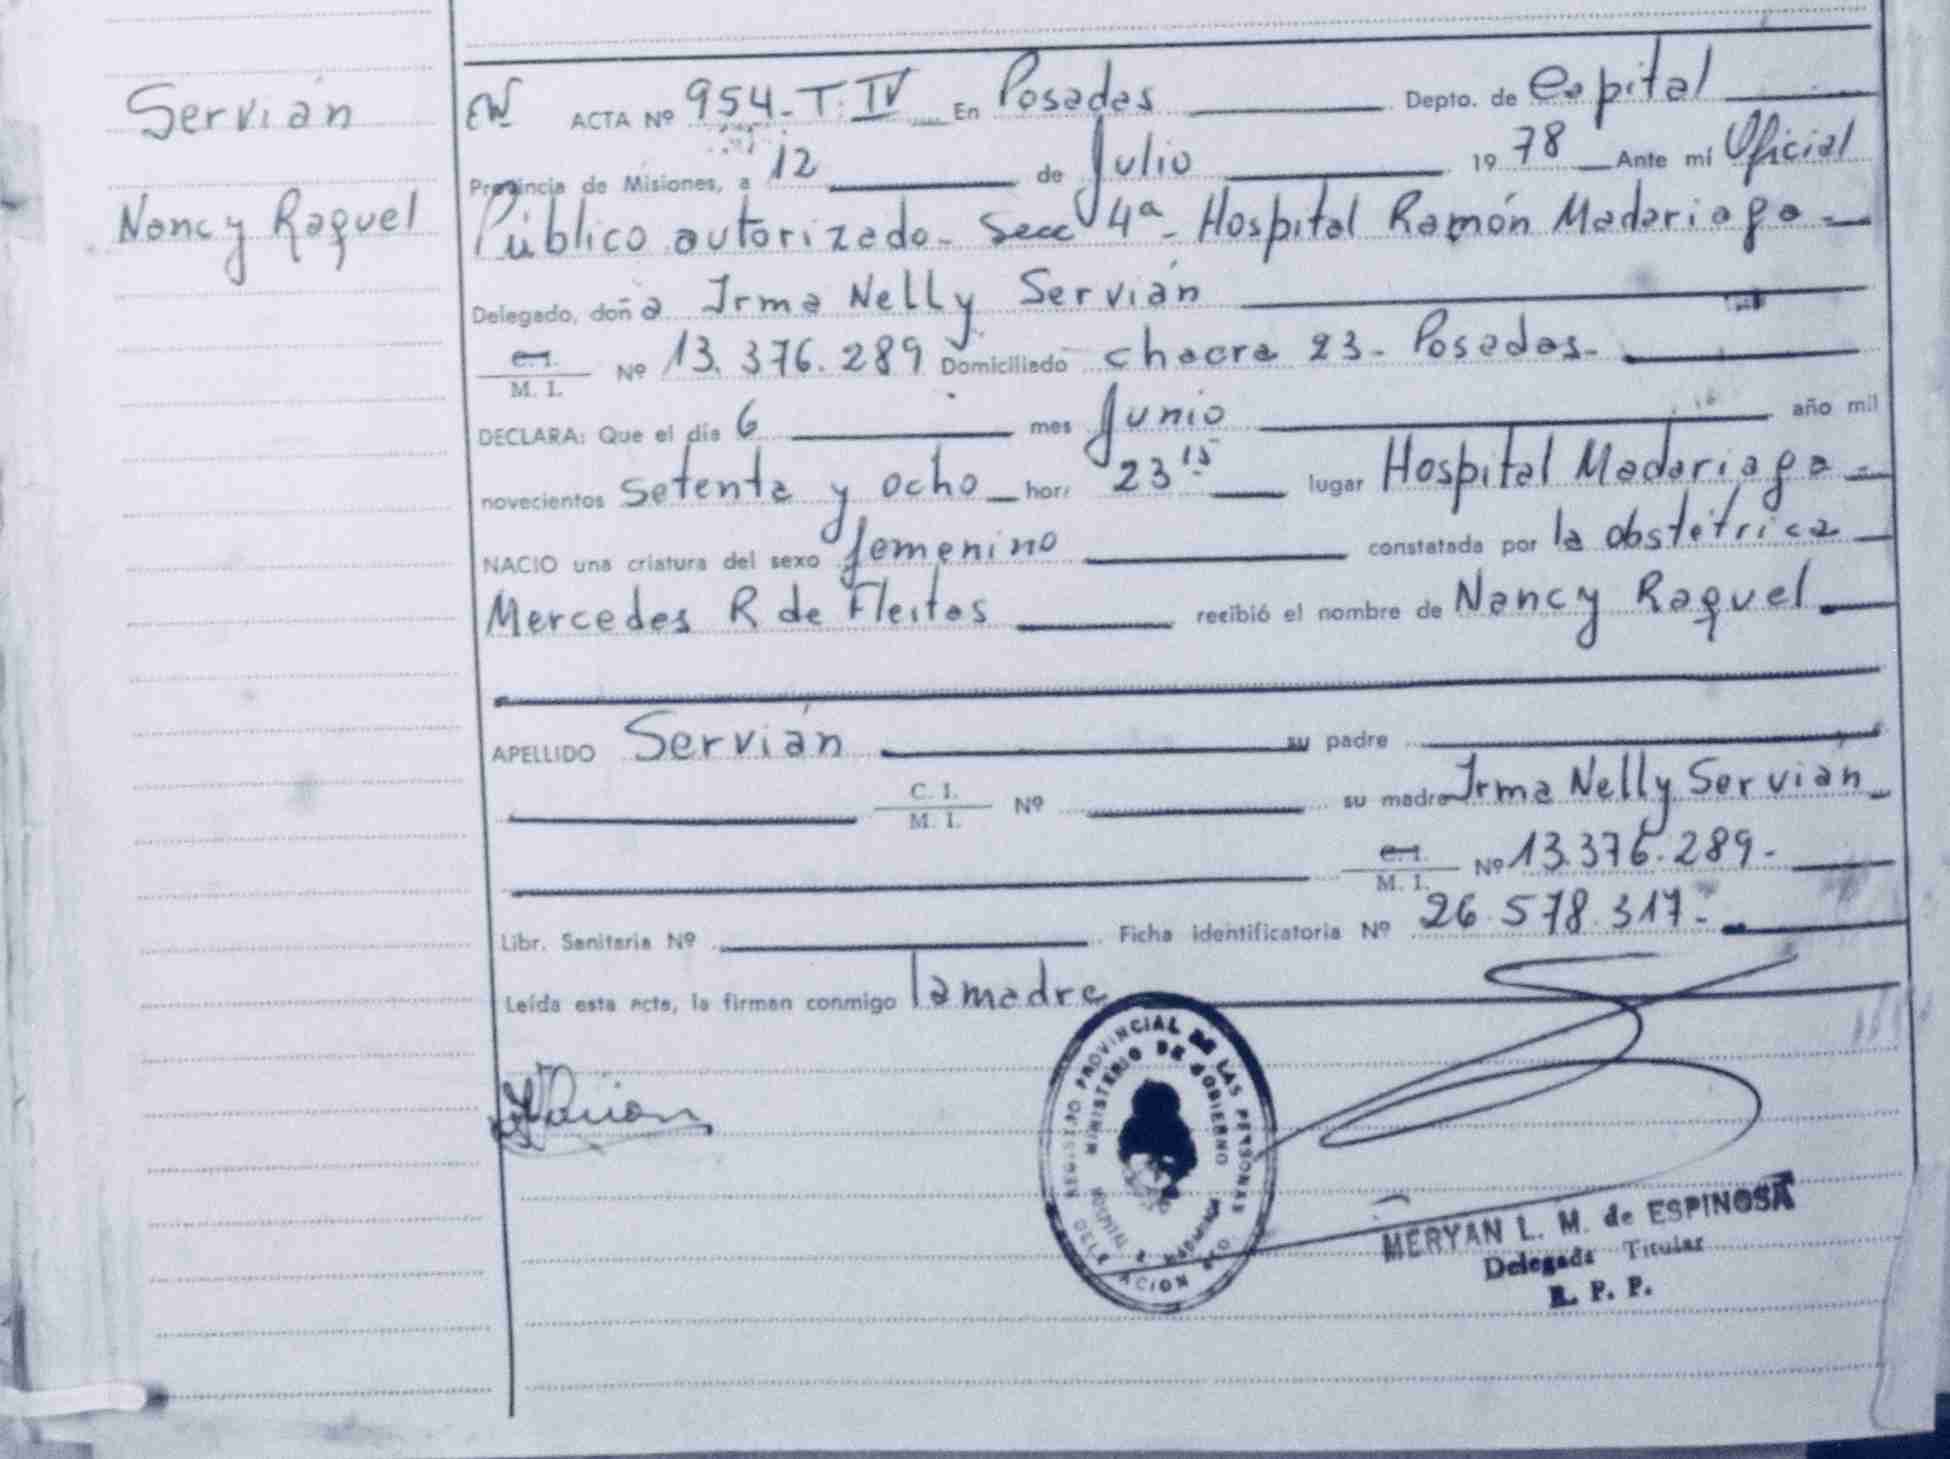 Servián
Nancy Raquel
ACTA Nº 954-T.IV En Posadas Depto. de Capital
Provincia de Misiones, a 12 de Julio 1978 Ante mí Oficial
Público autorizado - Secc 4ª - Hospital Ramón Madariaga -
Delegado, doña Irma Nelly Servián
C. I.
M. I. Nº 13.376.289 Domiciliado chacra 23 - Posadas -
DECLARA: Que el día 6 mes Junio año mil
novecientos setenta y ocho hora 23 15 lugar Hospital Madariaga -
NACIO una criatura del sexo femenino constatada por la obstétrica
Mercedes R de Fleitas recibió el nombre de Nancy Raquel
APELLIDO Servián su padre
C. I.
M. I. Nº su madre Irma Nelly Servián
C. I.
M. I. Nº 13.376.289-
Libr. Sanitaria Nº Ficha identificatoria Nº 26.578.317-
Leída esta acta, la firman conmigo la madre
REGISTRO PROVINCIAL DE LAS PERSONAS
MINISTERIO DE GOBIERNO
HOSPITAL R. MADARIAGA
MERYAN L. M. de ESPINOSA
Delegada Titular
R. P. P.